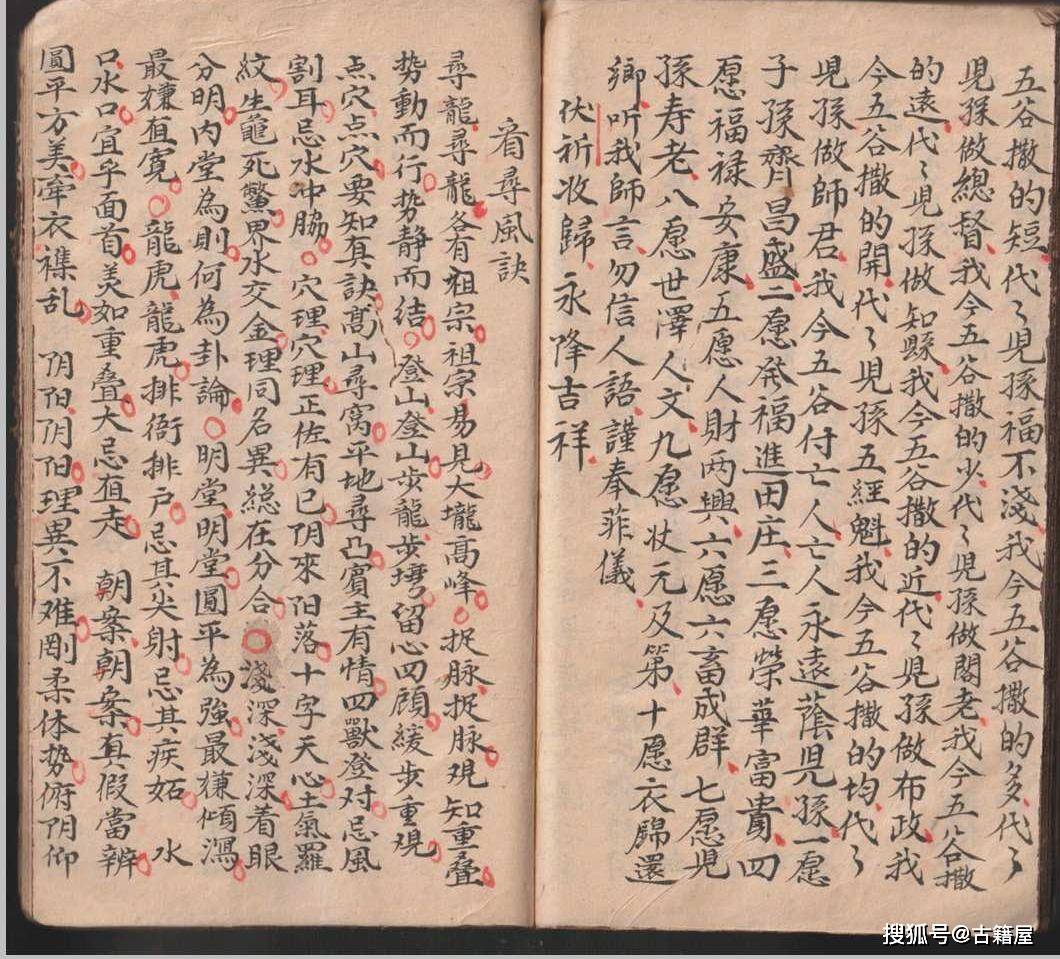 五谷撒的短代〻児孫福不淺我今五谷撒的多代〻
児孫做總督我今五谷撒的少代〻児孫做閣老我今五谷撒
的遠代〻児孫做知縣我今五谷撒的近代〻児孫做布政我
今五谷撒的開代〻児孫五經魁我今五谷撒的均代〻
児孫做師君我今五谷付亡人亡人永遠蔭児孫一愿
子孫齊昌盛二愿發福進田庄三愿榮華富貴四
愿福禄安康五愿人財两興六愿六畜成群七愿児
孫寿老八愿世澤人文九愿状元及第十愿衣錦還
鄉听我師言勿信人語謹奉菲儀
伏祈收歸永降吉祥
看尋風訣
尋龍尋龍各有祖宗祖宗易見大壠髙峰捉脉捉脉观知重叠
势動而行势静而结登山登山步龍步塆留心四顧緩步重观
点穴点穴要知真訣髙山尋窩平地尋凸賓主有情四獸登对忌風
割耳忌水冲脇穴理穴理正佐有已阴來阳落十字天心土氣羅
紋生龜死鱉界水交金理同名異総在分合淺深淺深着眼
分明内堂為則何為卦論明堂明堂圓平為強最嫌傾瀉
最嫌直寬龍虎龍虎排衙排户忌其尖射忌其疾妬水
口水口宜乎面首美如重叠大忌直走朝案朝案真假當辨
圓平方美牵衣襍乱阴阳阴阳理異不难剛柔体势俯阴仰
搜狐号@古籍屋